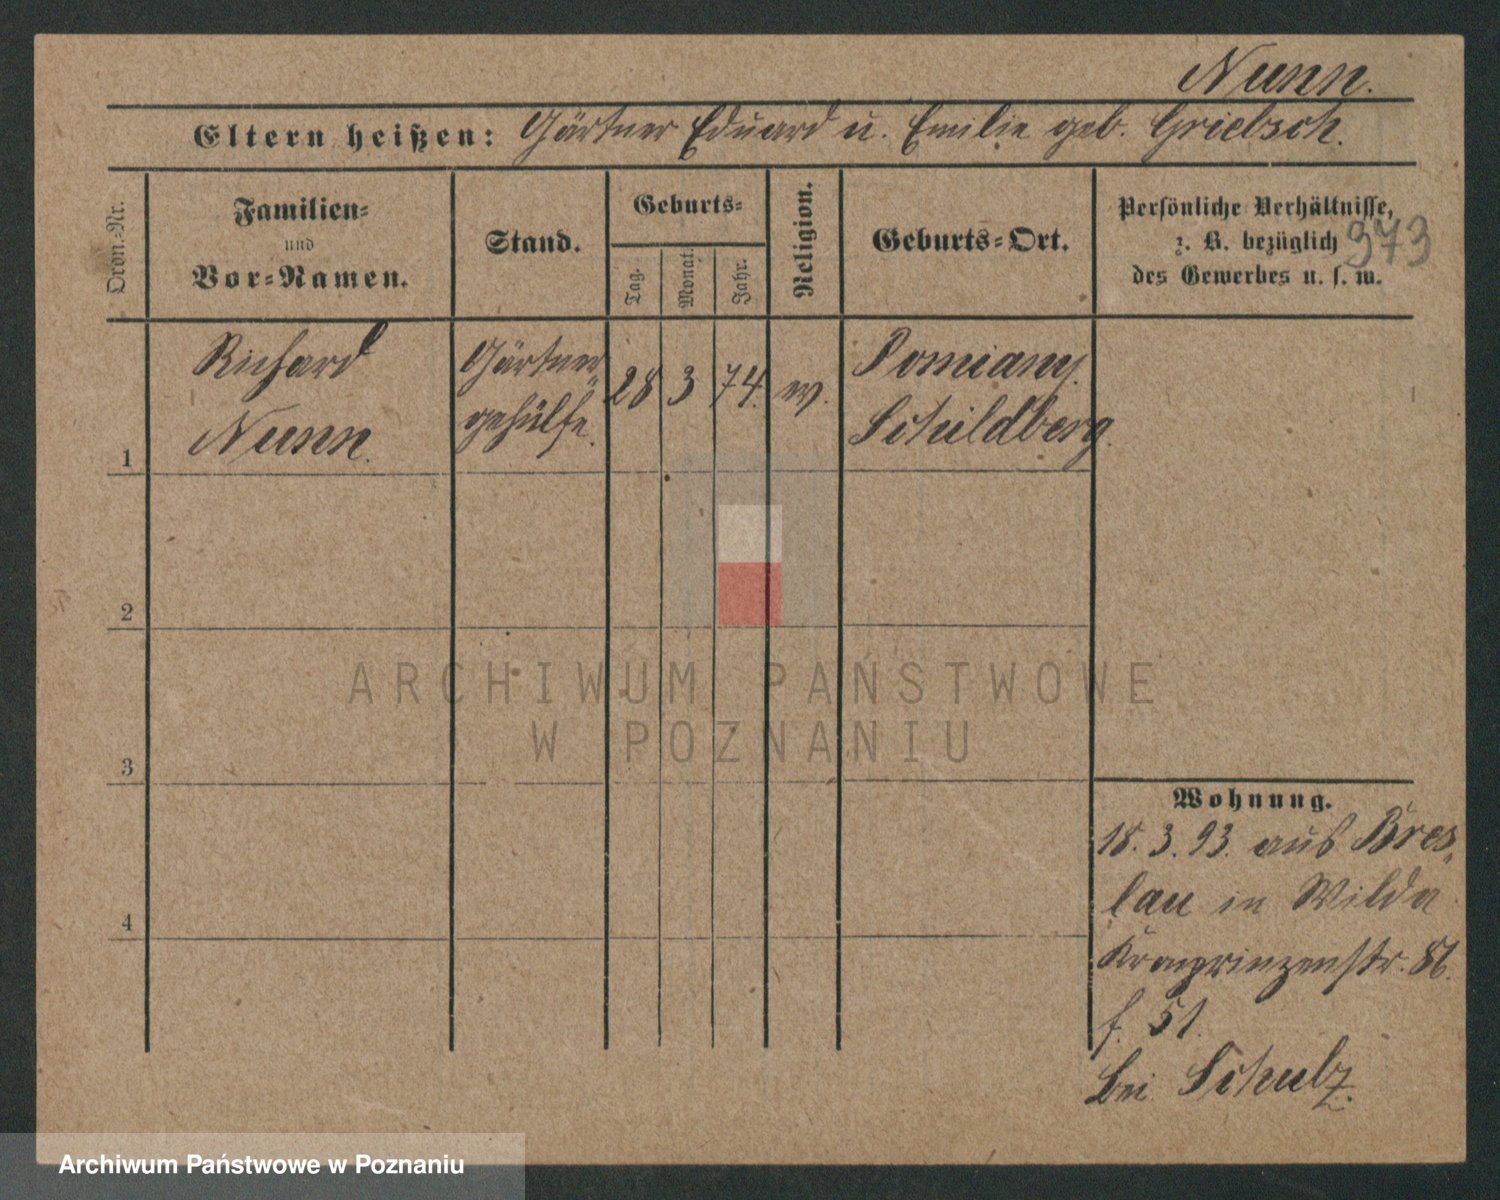 Nunn.
Eltern heißen: Gärtner Eduard u. Emilie geb. Griebsch.
Ordn.-Nr.
Familien-
und
Vor-Namen.
Stand.
Geburts-
Tag.
Monat.
Jahr.
Religion.
Geburts-Ort.
Persönliche Verhältnisse,
z. B. bezüglich
des Gewerbes u. s. w.
373
Richard
Nunn.
Gärtner-
gehülfe.
28
3
74.
Pomiany.
Schildberg.
1
2
3
4
ARCHIWUM PAŃSTWOWE
W POZNANIU
Wohnung.
18. 3. 93. aus Bres-
lau in Wilda
Kronprinzenstr. 86.
f. 51.
bei Schulz.
Archiwum Państwowe w Poznaniu